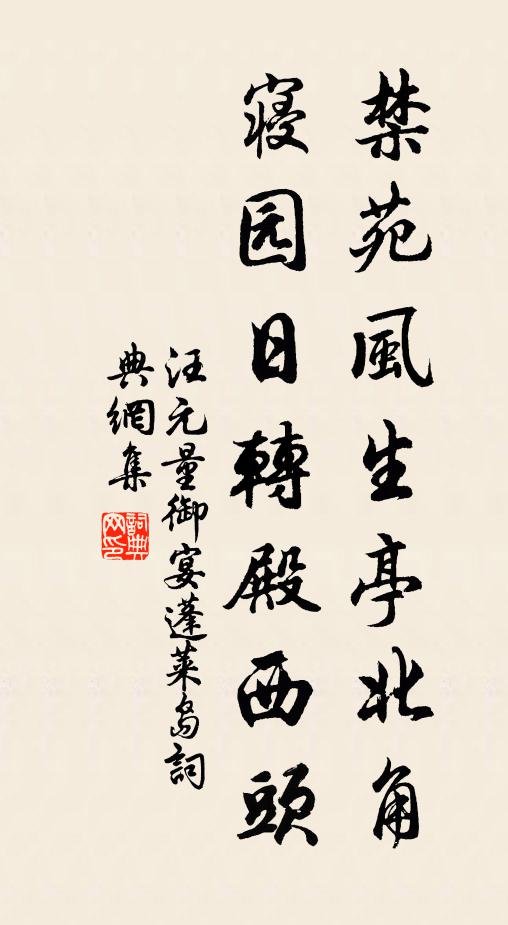 禁苑風生亭北角
寝园日轉殿西頭
汪元量御宴蓬莱岛詞
典網集
詞典
网印